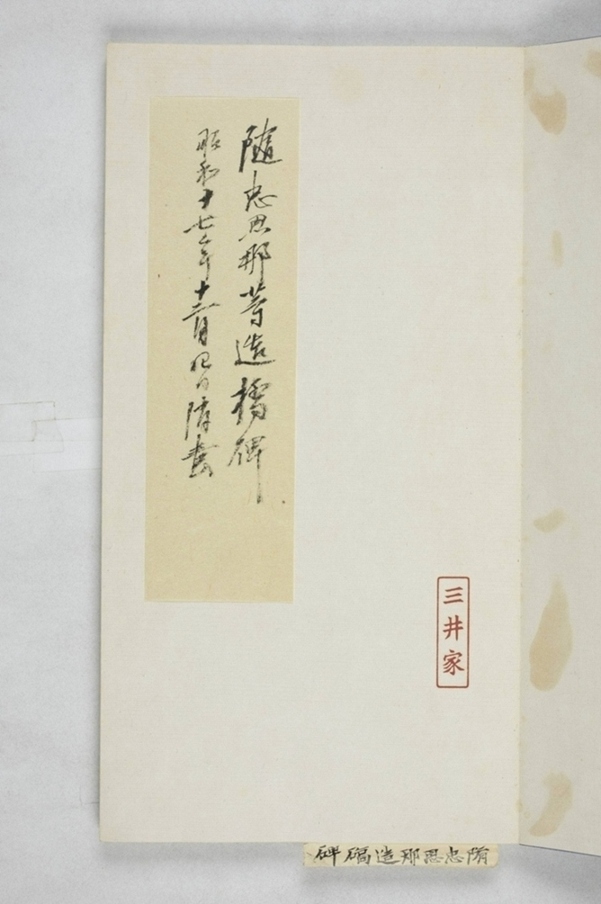 隨忠思那等造橋碑
昭和十七年十二月
三井家
隋忠思那造橋碑